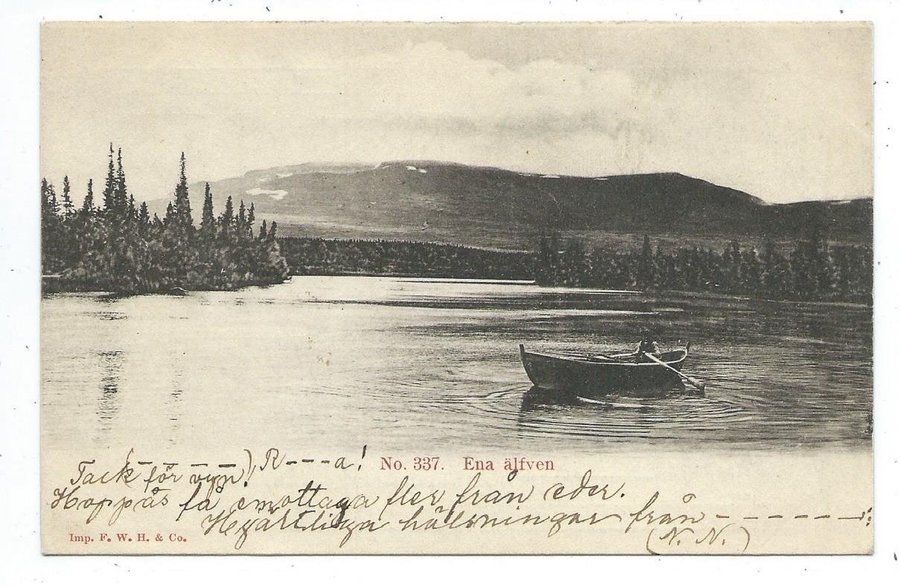 No. 337. Ena älfven
Tack för vyn! R---a!
Hoppås få emottaga fler från eder.
Hjärtliga hälsningar från
(N. N.)
Imp. F. W. H. & Co.